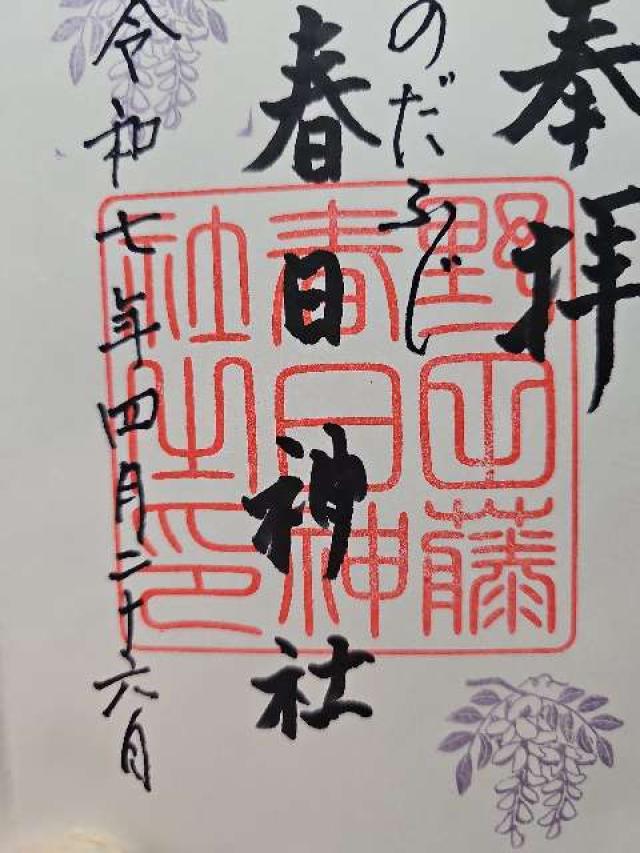 奉拝
のだふじ
春日神社
令和七年四月二十六日
野田藤
春日神
社之印